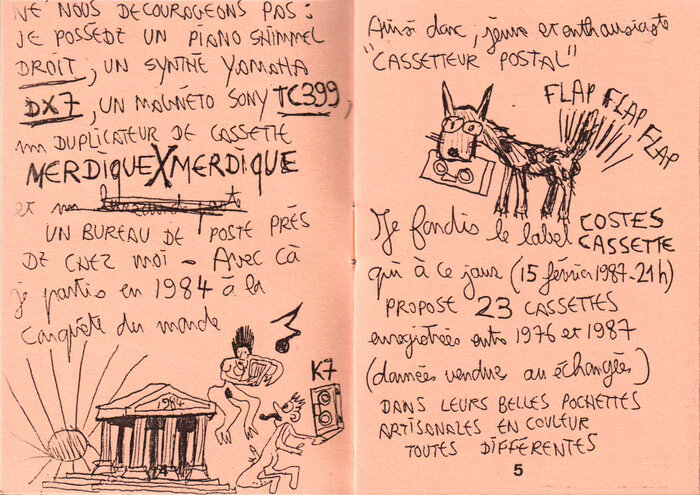 NE NOUS DECOURAGEONS PAS :
JE POSSEDE UN PIANO SHIMMEL
DROIT, UN SYNTHE YAMAHA
DX7, UN MAGNÉTO SONY TC399,
un DUPLICATEUR DE CASSETTE
MERDIQUEXMERDIQUE
et un
UN BUREAU DE POSTE PRÈS
DE CHEZ MOI - AVEC CÀ
je partis en 1984 à la
Conquête du monde
1984
K7
4
Ainsi donc, jeune et enthousiaste
"CASSETTEUR POSTAL"
FLAP FLAP FLAP
Je fondis le label COSTES
CASSETTE
qui à ce jour (15 février 1987-21h)
PROPOSE 23 CASSETTES
enregistrées entre 1976 et 1987
(données vendues ou échangées)
DANS LEURS BELLES POCHETTES
ARTISANALES EN COULEUR
TOUTES DIFFERENTES
5